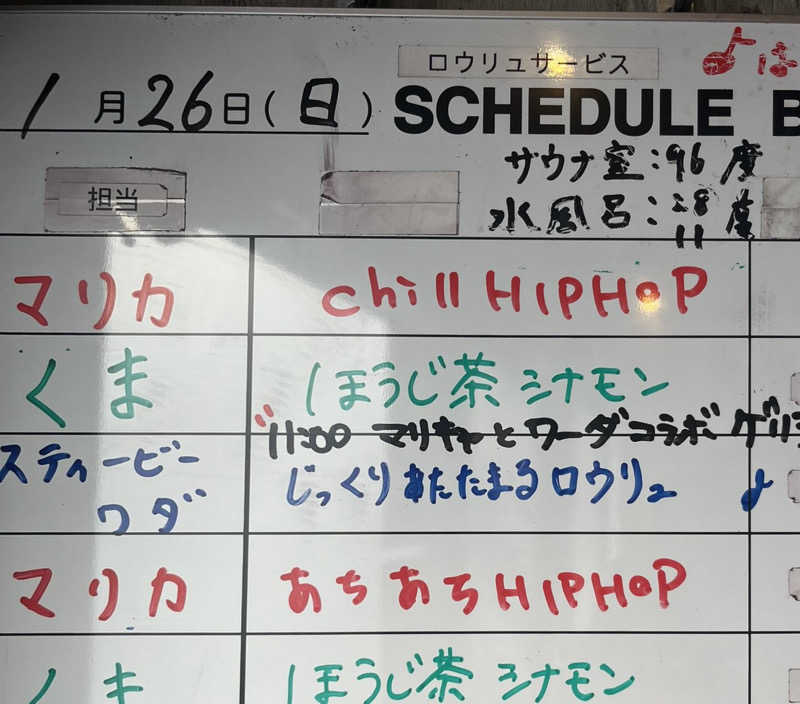 ♪は
ロウリュサービス
1月26日(日) SCHEDULE B
ザウナ室:96度
水風呂:28
11度
担当
マリカ chill HIPHOP
くま ほうじ茶 シナモン
"11:00 マリキャとワーダコラボ ゲリラ
スティービー じっくりあたたまるロウリュ ♪
ワダ
マリカ あちあちHIPHOP
ほうじ茶 シナモン